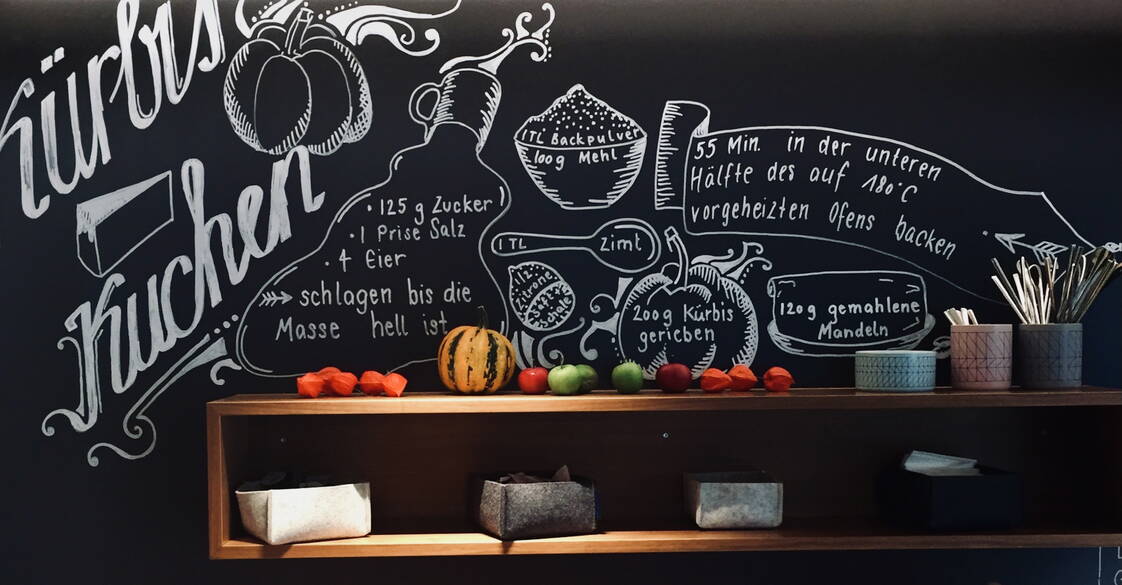 Kürbis
Kuchen
• 125 g Zucker
• 1 Prise Salz
• 4 Eier
schlagen bis die
Masse hell ist
1TL Backpulver
100g Mehl
1 TL Zimt
1/2
Zitrone
Saft +
Schale
200g Kürbis
gerieben
120g gemahlene
Mandeln
55 Min. in der unteren
Hälfte des auf 180°C
vorgeheizten Ofens backen